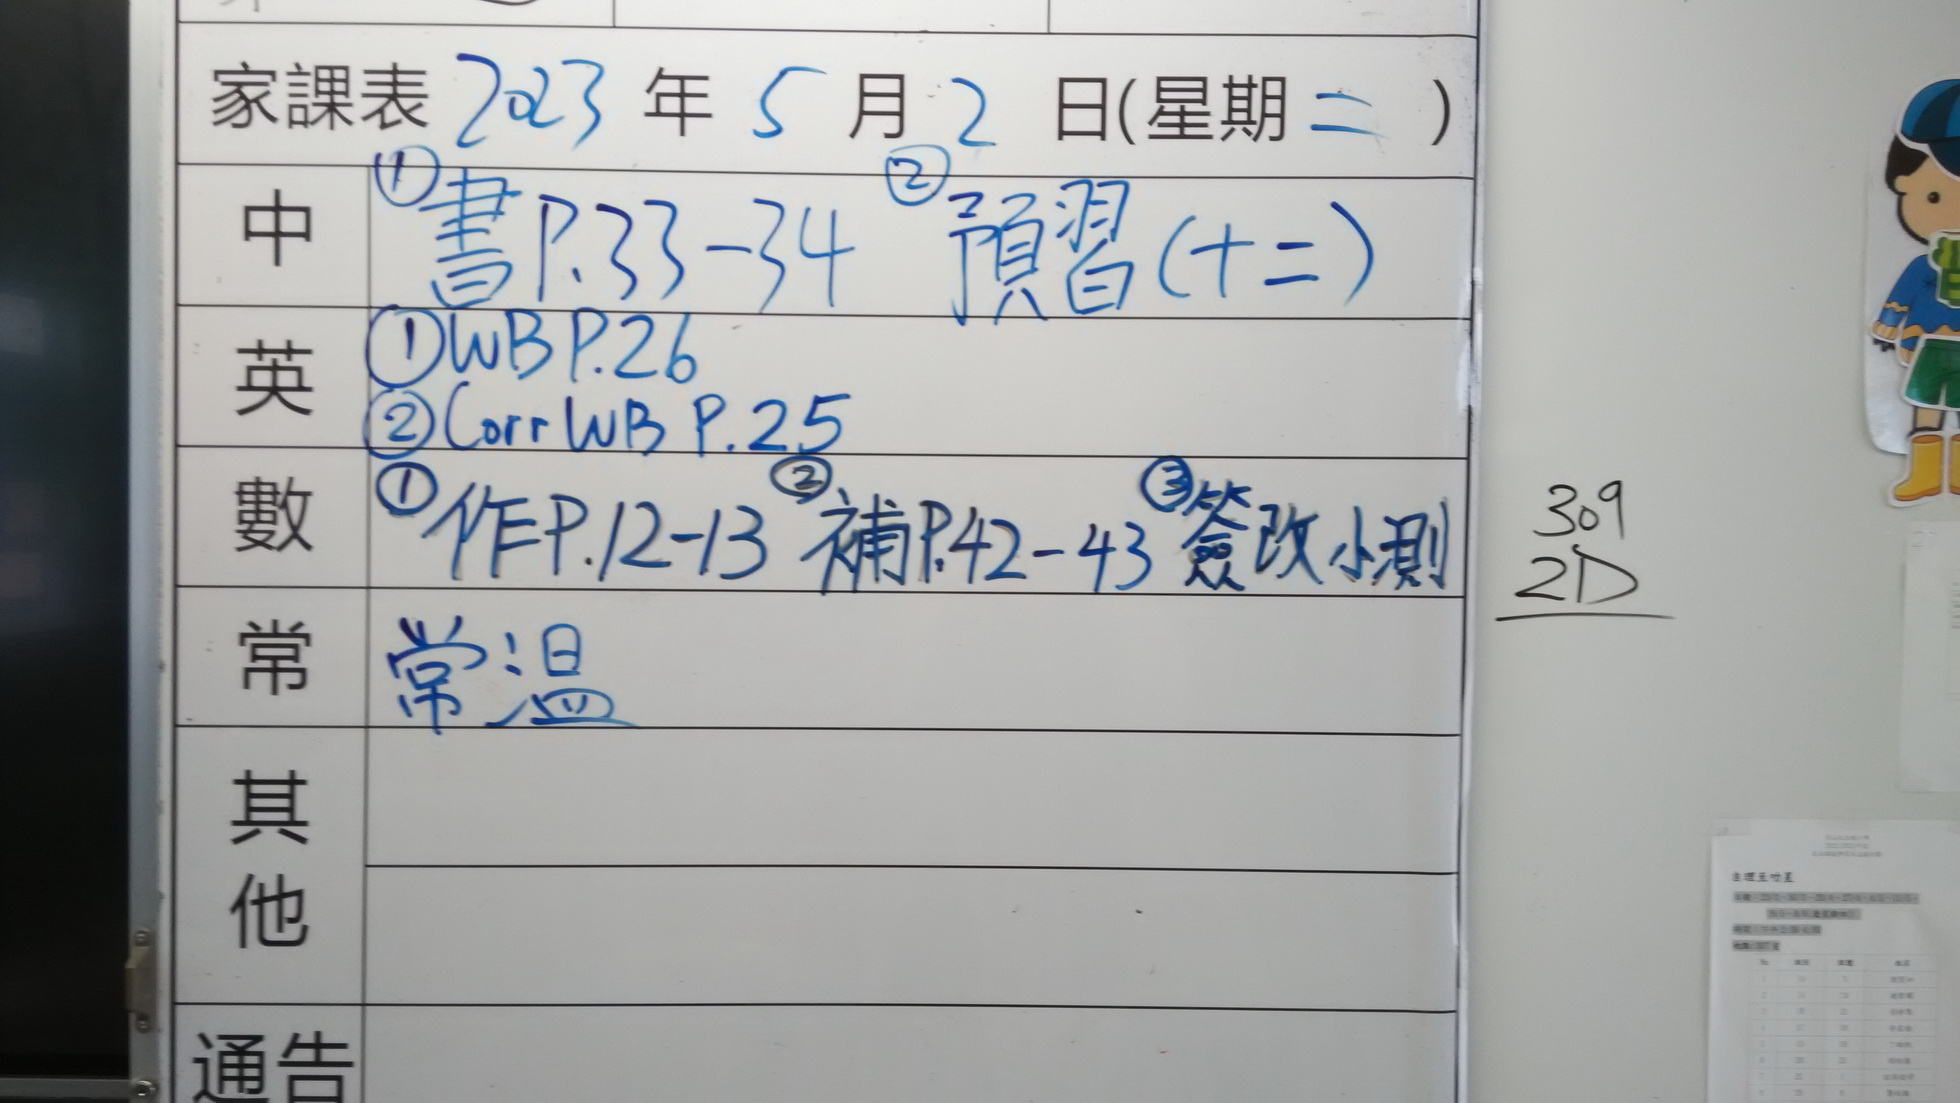 家課表 2023 年 5 月 2 日(星期 二 )
中 ①書P.33-34 ②預習(十二)
英 ①WB P.26
②Corr WB P.25
數 ①作P.12-13 ②補P.42-43 ③簽改小測
常 常溫
其他
通告
309
2D